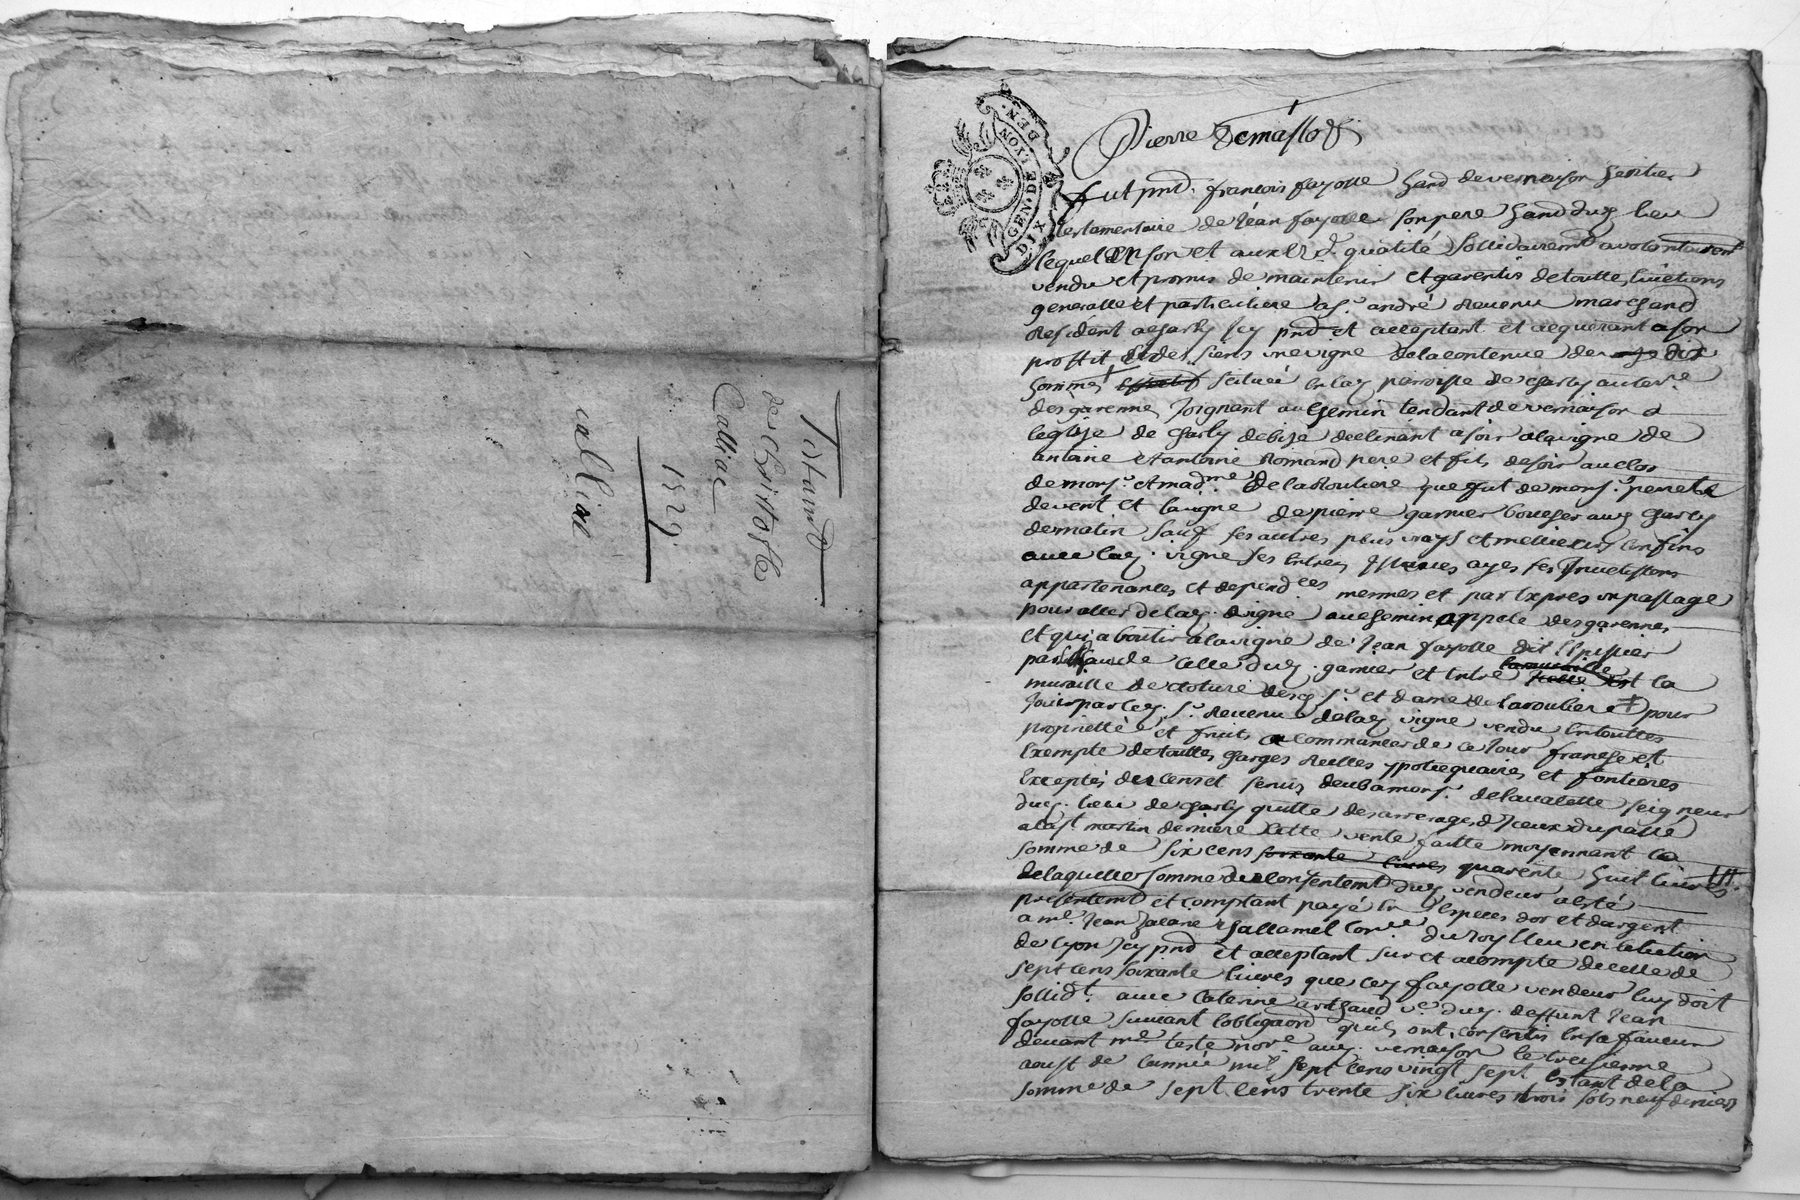 Testamt
de Christofle
Calliac
1529
calliac
GEN. DE LYON
DIX DEN.
Pierre Demasso
fut pnt. francois fayolle hand de vernaison heritier
testamentaire de Jean fayolle son pere hand dud lieu
lequel en son et aux d. qualité sollidairemt a volontairemt
vendu et promis de maintenir et garentir de touttes
generalle et particuliere a sr. andré Revenu marchand
Resident a charly Icy pnt et acceptant et acquerant a son
proffit et des siens une vigne de la contenue de dix
hommes scituée en lad parroisse de charly au terre
des garennes Joignant au chemin tendant de vernaison a
leglize de charly de bize declinant a soir a la vigne de
antoine et antoine Romand pere et fils de soir au clos
de monsr. et madme de la Rouliere que fut de monsr. perret
de vent et la vigne de pierre garnier boucher aud charly
de matin sauf ses autres plus vrays et meilleurs confins
avec lad. vigne ses entrées ayes ses
appartenances et dependces mesmes et par Expres un passage
pour aller de lad. vigne au chemin appele des garennes
et qui a boutir a la vigne de Jean fayolle dit
par celle dud. garnier et entre la
muraille de cloture desd. sr. et dame de la Rouliere pour
Jouir par led. sr. Revenu de lad vigne vendu en touttes
proprietté et fruits a commancer de ce Jour franche et
Exempte de touttes charges Reelles ypotequaires et fontieres
Exceptés des cens et servis deub a monsr. de la valette seigneur
dud. lieu de charly quitte des arrerages d'Iceux du passé
a la st. martin derniere Cette vente faitte moyennant la
somme de six cens soixante livres quarente huit livres
de laquelle somme du consentemt dud vendeur a esté
presentemt et comptant payé en Especes dor et dargent
a mr. Jean challamel conr. du Roy Eleu en leslection
de lyon Icy pnt et acceptant sur et acompte de celle de
sept cens soixante livres que led fayolle vendeur luy doit
sollidt. avec Caterine arthaud ve. dud. deffunt Jean
fayolle suivant lobligaon quils ont consentis en sa faveur
devant me teste nore aud. vernaison le treizieme
aoust de lannée mil sept cens vingt sept Estant de la
somme de sept cens trente six livres trois sols neuf deniers